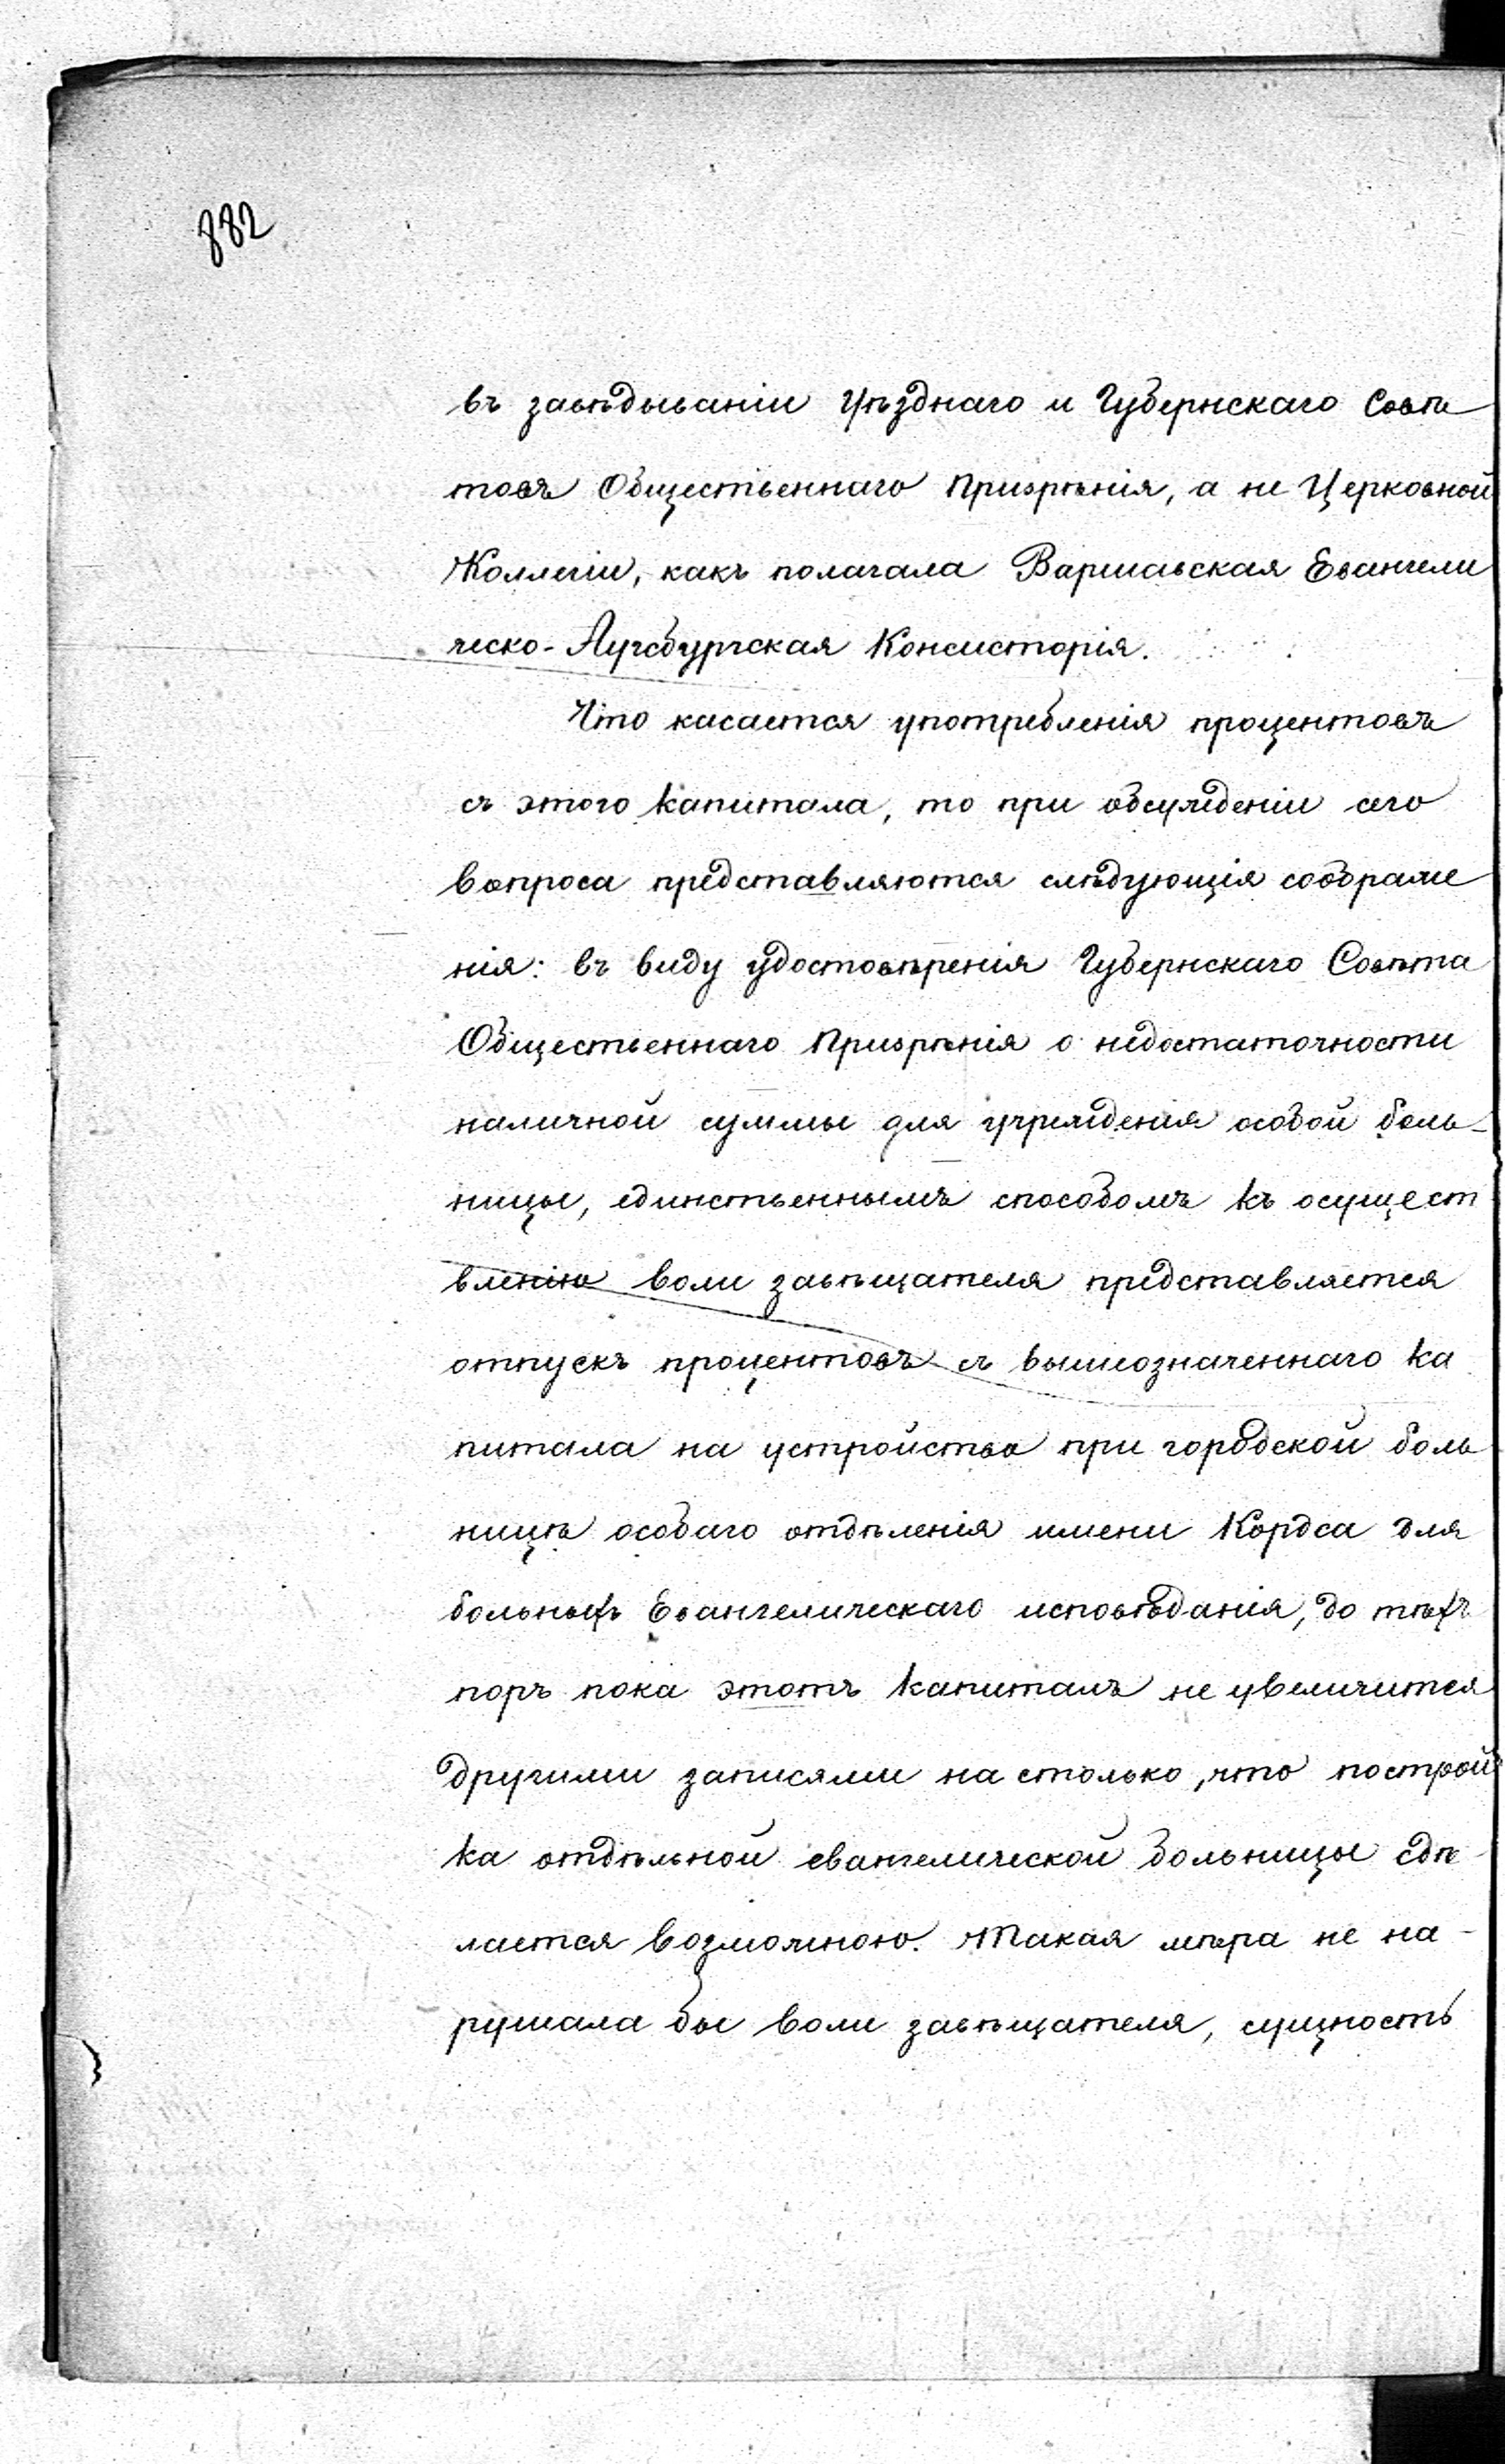 882
въ завѣдываніи Уѣзднаго и Губернскаго Совѣ
товъ Общественнаго Призрѣнія, а не Церковной
Коллегіи, какъ полагала Варшавская Евангели
ческо-Аугсбургская Консисторія.
Что касается употребленія процентовъ
съ этого капитала, то при обсужденіи сего
вопроса представляются слѣдующія соображе
нія: въ виду удостовѣренія Губернскаго Совѣта
Общественнаго Призрѣнія о недостаточности
наличной суммы для учрежденія особой боль-
ницы, единственнымъ способомъ къ осущест
вленію воли завѣщателя представляется
отпускъ процентовъ съ вышеозначеннаго ка
питала на устройство при городской боль
ницѣ особаго отдѣленія имени Кордса для
больныхъ Евангелическаго исповѣданія, до тѣхъ
поръ пока этотъ капиталъ не увеличится
другими записями на столько, что построй
ка отдѣльной евангелической больницы сдѣ-
лается возможною. Такая мѣра не на-
рушала бы воли завѣщателя, сущность